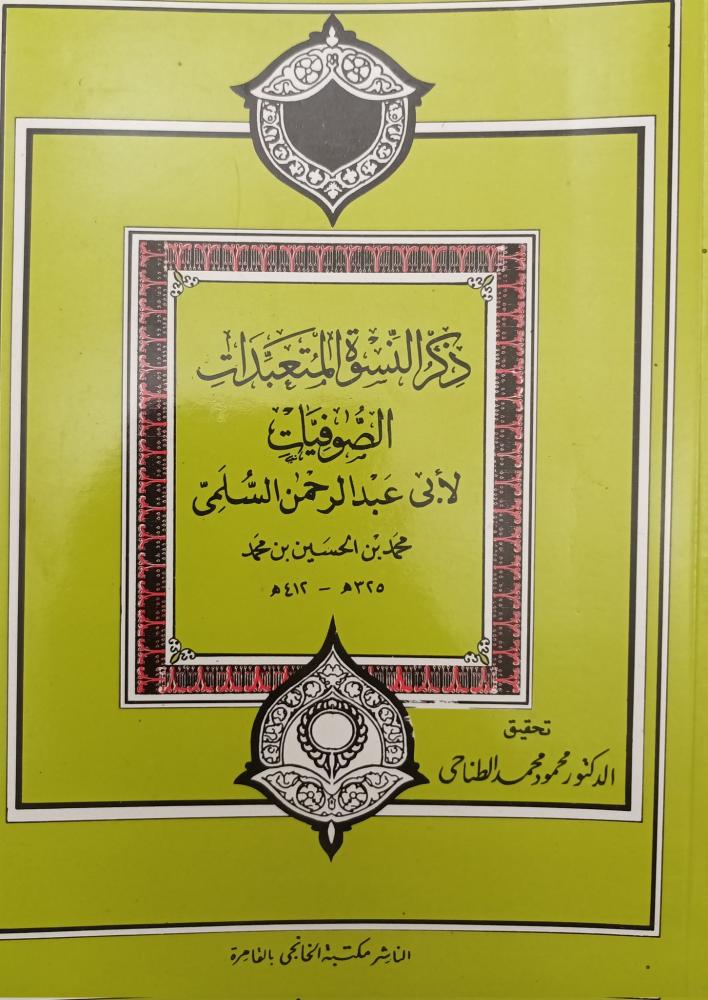 ذِكْرُ النِّسْوَةِ المُتَعَبِّدَاتِ
الصُّوفِيَّاتِ
لأبى عَبْد الرحمن السُّلَمِىّ
محمد بن الحسَين بن محمد
٣٢٥هـ - ٤١٢هـ
تحقيق
الدكتور محمود محمد الطناحى
الناشر مكتبة الخانجى بالقاهرة